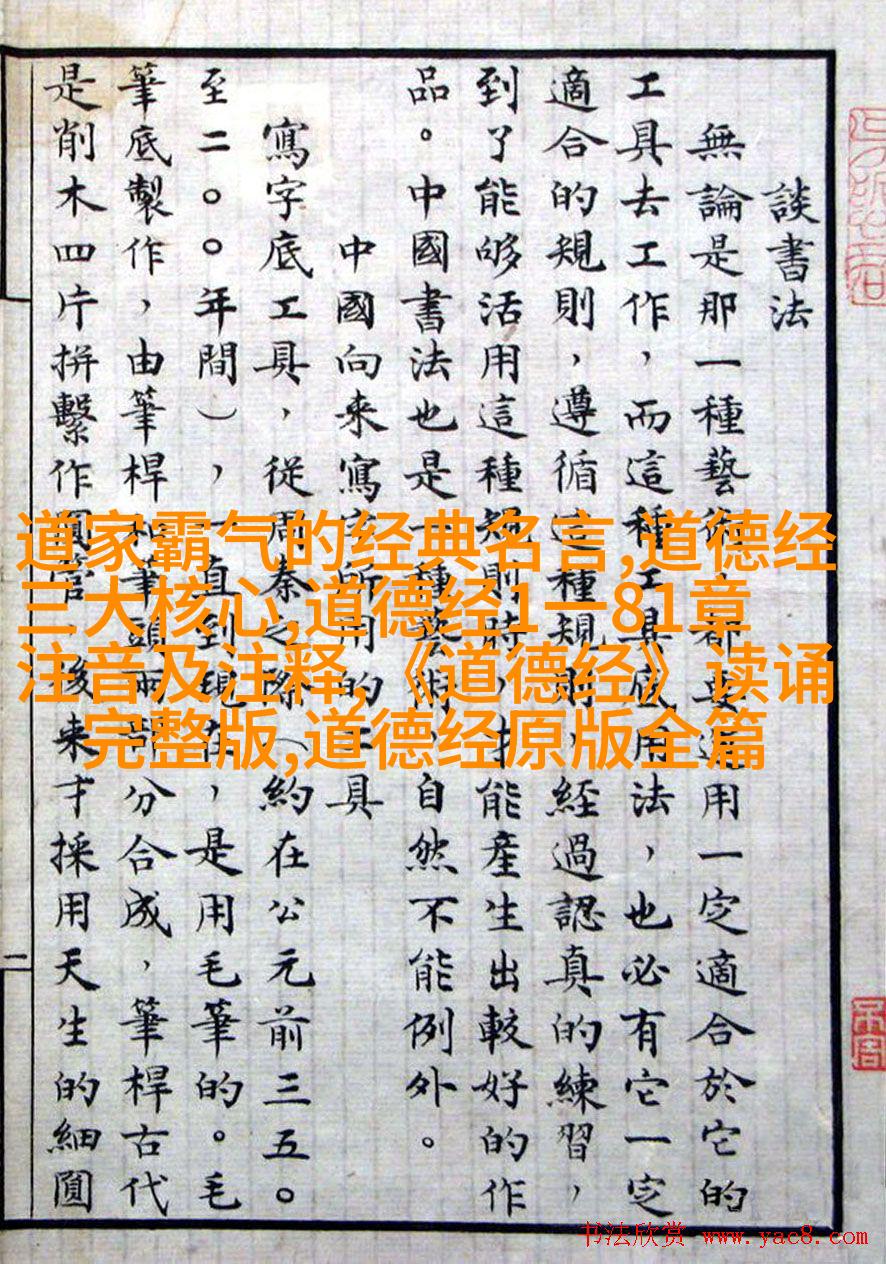 談書法
無論是那一種藝術，都要用一定適合於它的
工具去工作，而這種工具底用法，也必有它一定
適合的規則，遵循這種規則，經過認真的練習，
到了能够活用這種規則時，才能產生出較好的作
品。中國書法也是一種藝術，自然不能例外。
中國向来寫字所用的工具
寫字底工具，從周秦之際（約在公元前三五〇
至二〇〇年間），一直到現在，是用毛筆的。毛
筆底製作，由筆桿和筆頭兩部分合成，筆桿古代
是削木四片拼繫作圓管，後来才採用天生的細圓
二
道家霸气的经典名言,道德经
三大核心,道德经1一81章
注音及注释,《道德经》读诵
完整版,道德经原版全篇
书法欣赏 www.yac8.com